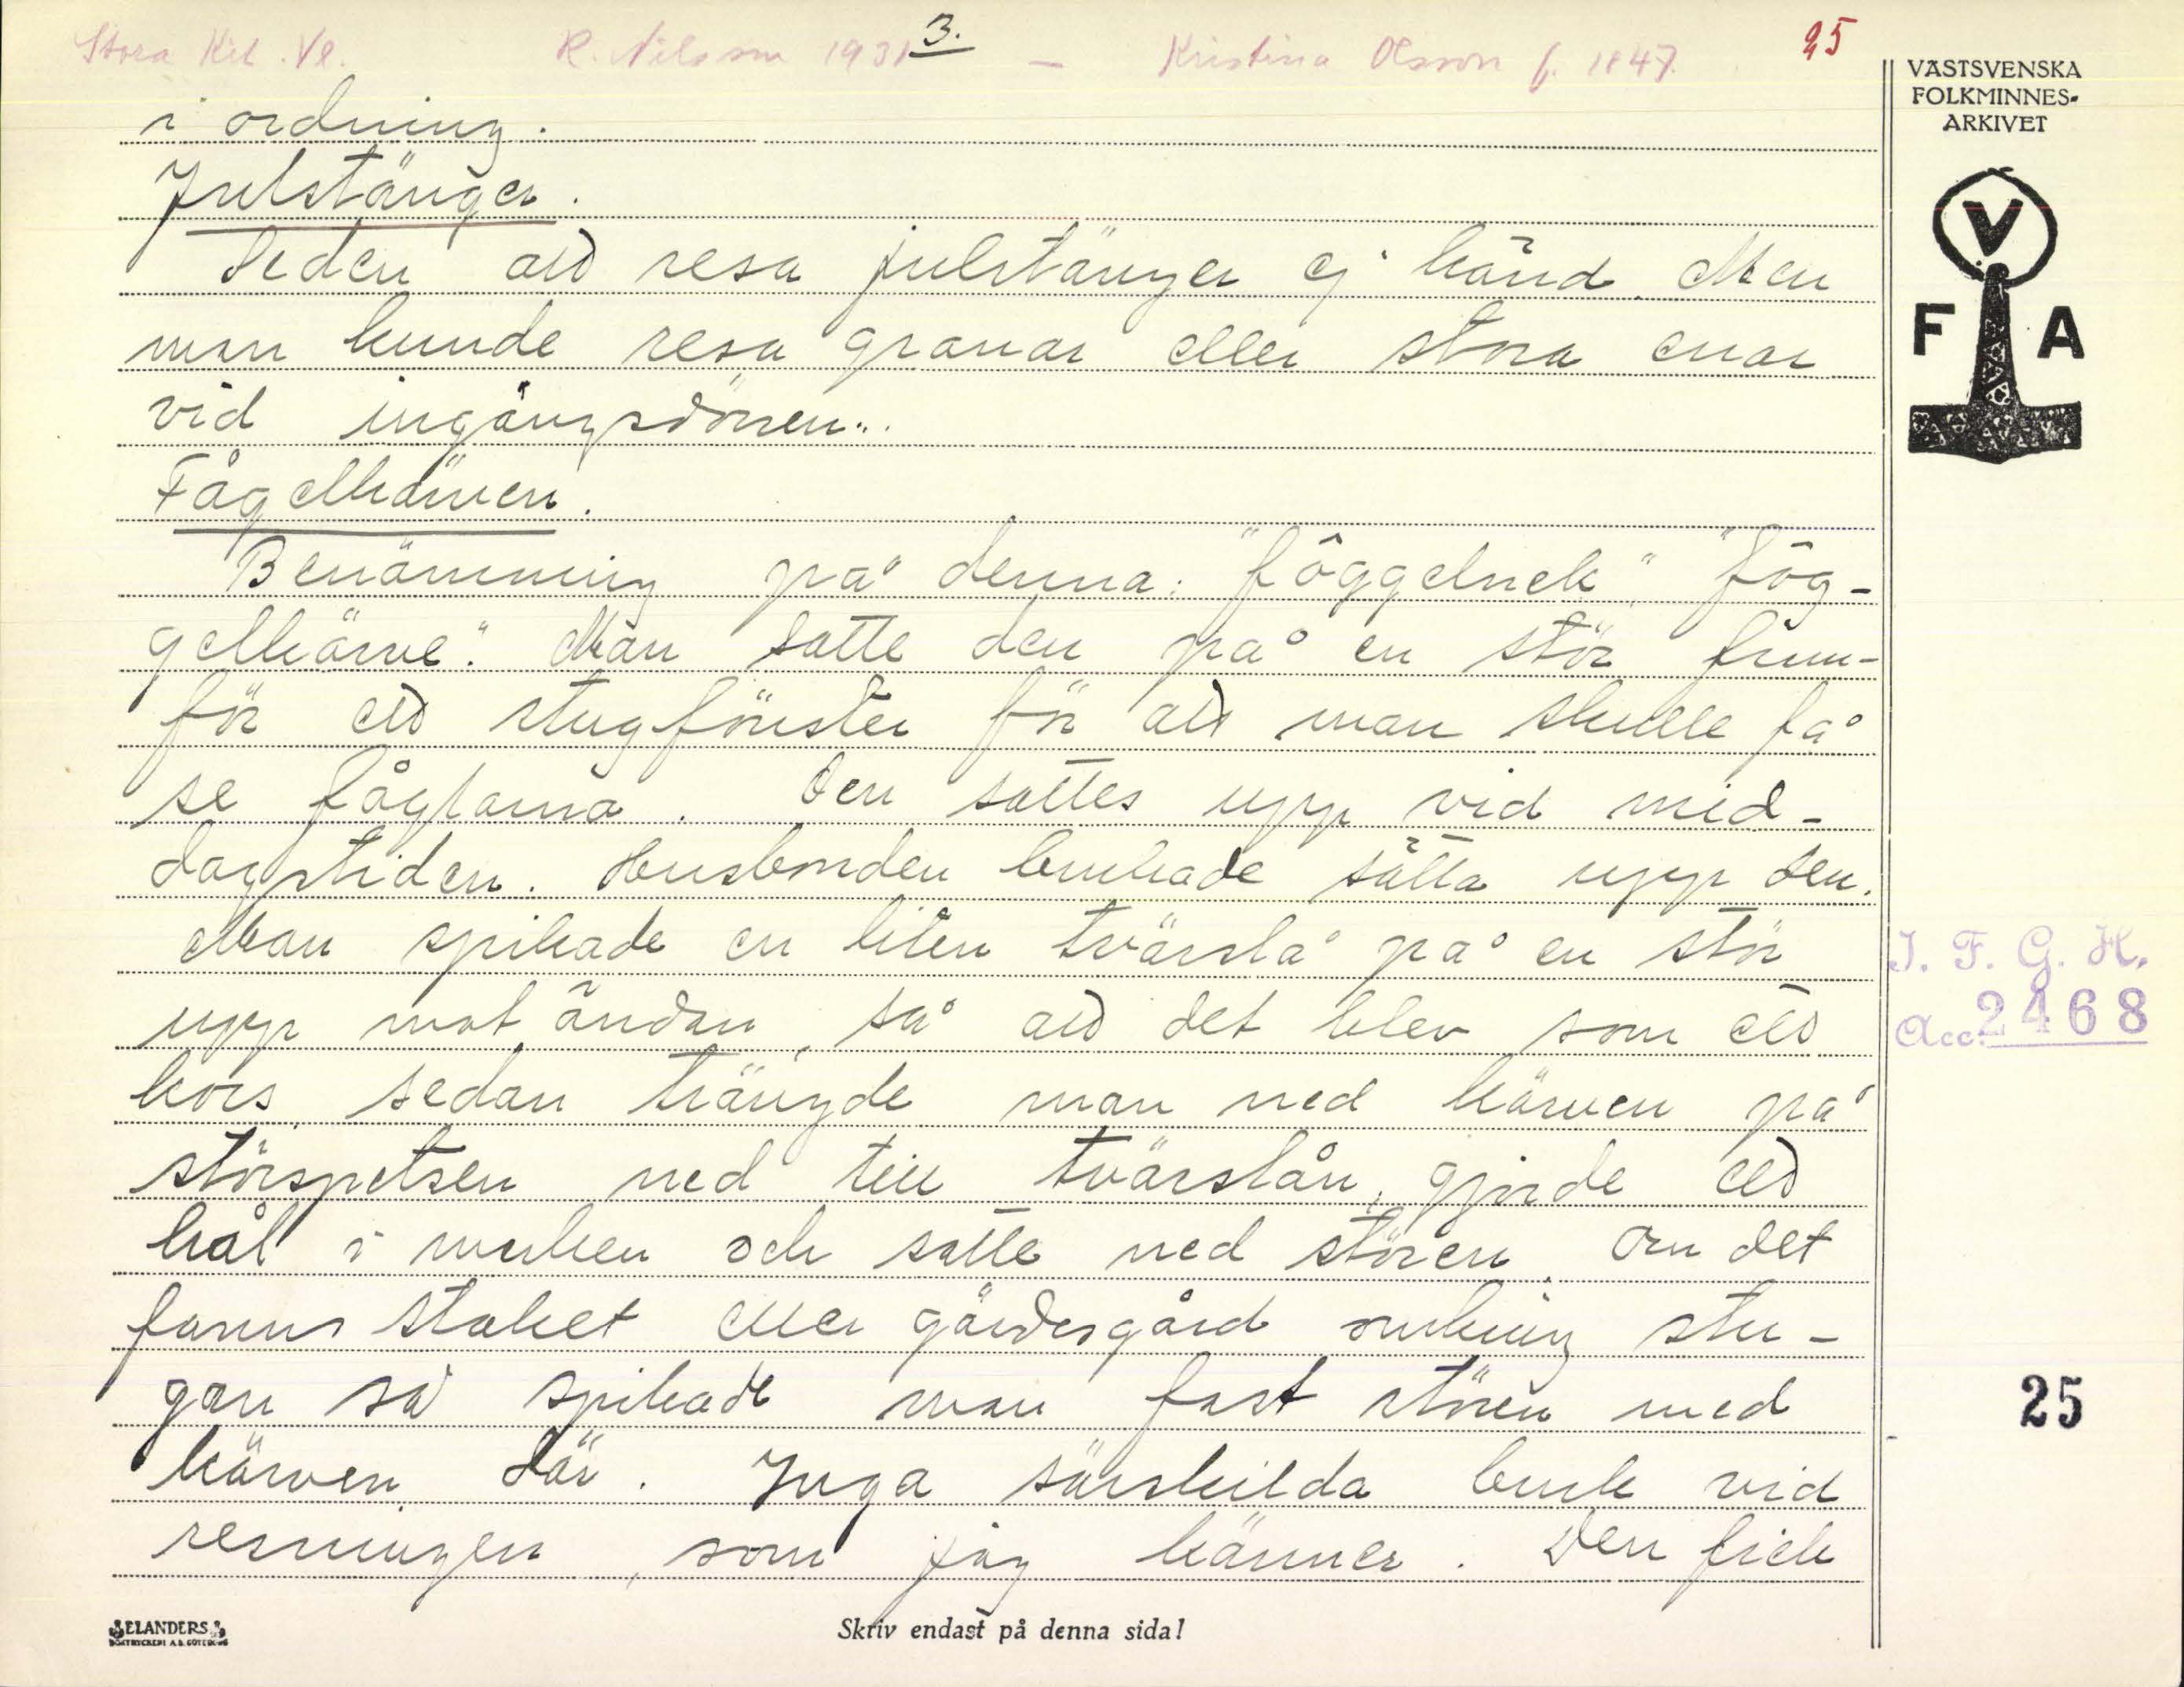 Stora Kil. Vl. R. Nilsson 1931 3. – Kristina Olsson f. 1847. 25
VÄSTSVENSKA
FOLKMINNES-
ARKIVET
V
F A
i ordning.
Julstänger.
Seden att resa julstänger ej känd. Men
man kunde resa granar eller stora enar
vid ingångsdörren.
Fågelkärven.
Benämning på denna: "fôggelnek" "fôg-
gelkärve". Man satte den på en stör fram-
för ett stugfönster för att man skulle få
se fåglarna. Den sattes upp vid mid-
dagstiden. Husbonden brukade sätta upp den.
Man spikade en liten tvärslå på en stör
upp mot ändan, så att det blev som ett
kors, sedan trängde man ned kärven på
störspetsen ned till tvärslån, gjorde ett
hål i marken och satte ned stören. Om det
fanns staket eller gärdesgård omkring stu-
gan så spikade man fast stören med
kärven där. Inga särskilda bruk vid
resningen, som jag känner. Den fick
I. F. G. H.
Acc. 2468
25
ELANDERS
BOKTRYCKERI A.B. GÖTEBORG
Skriv endast på denna sida!